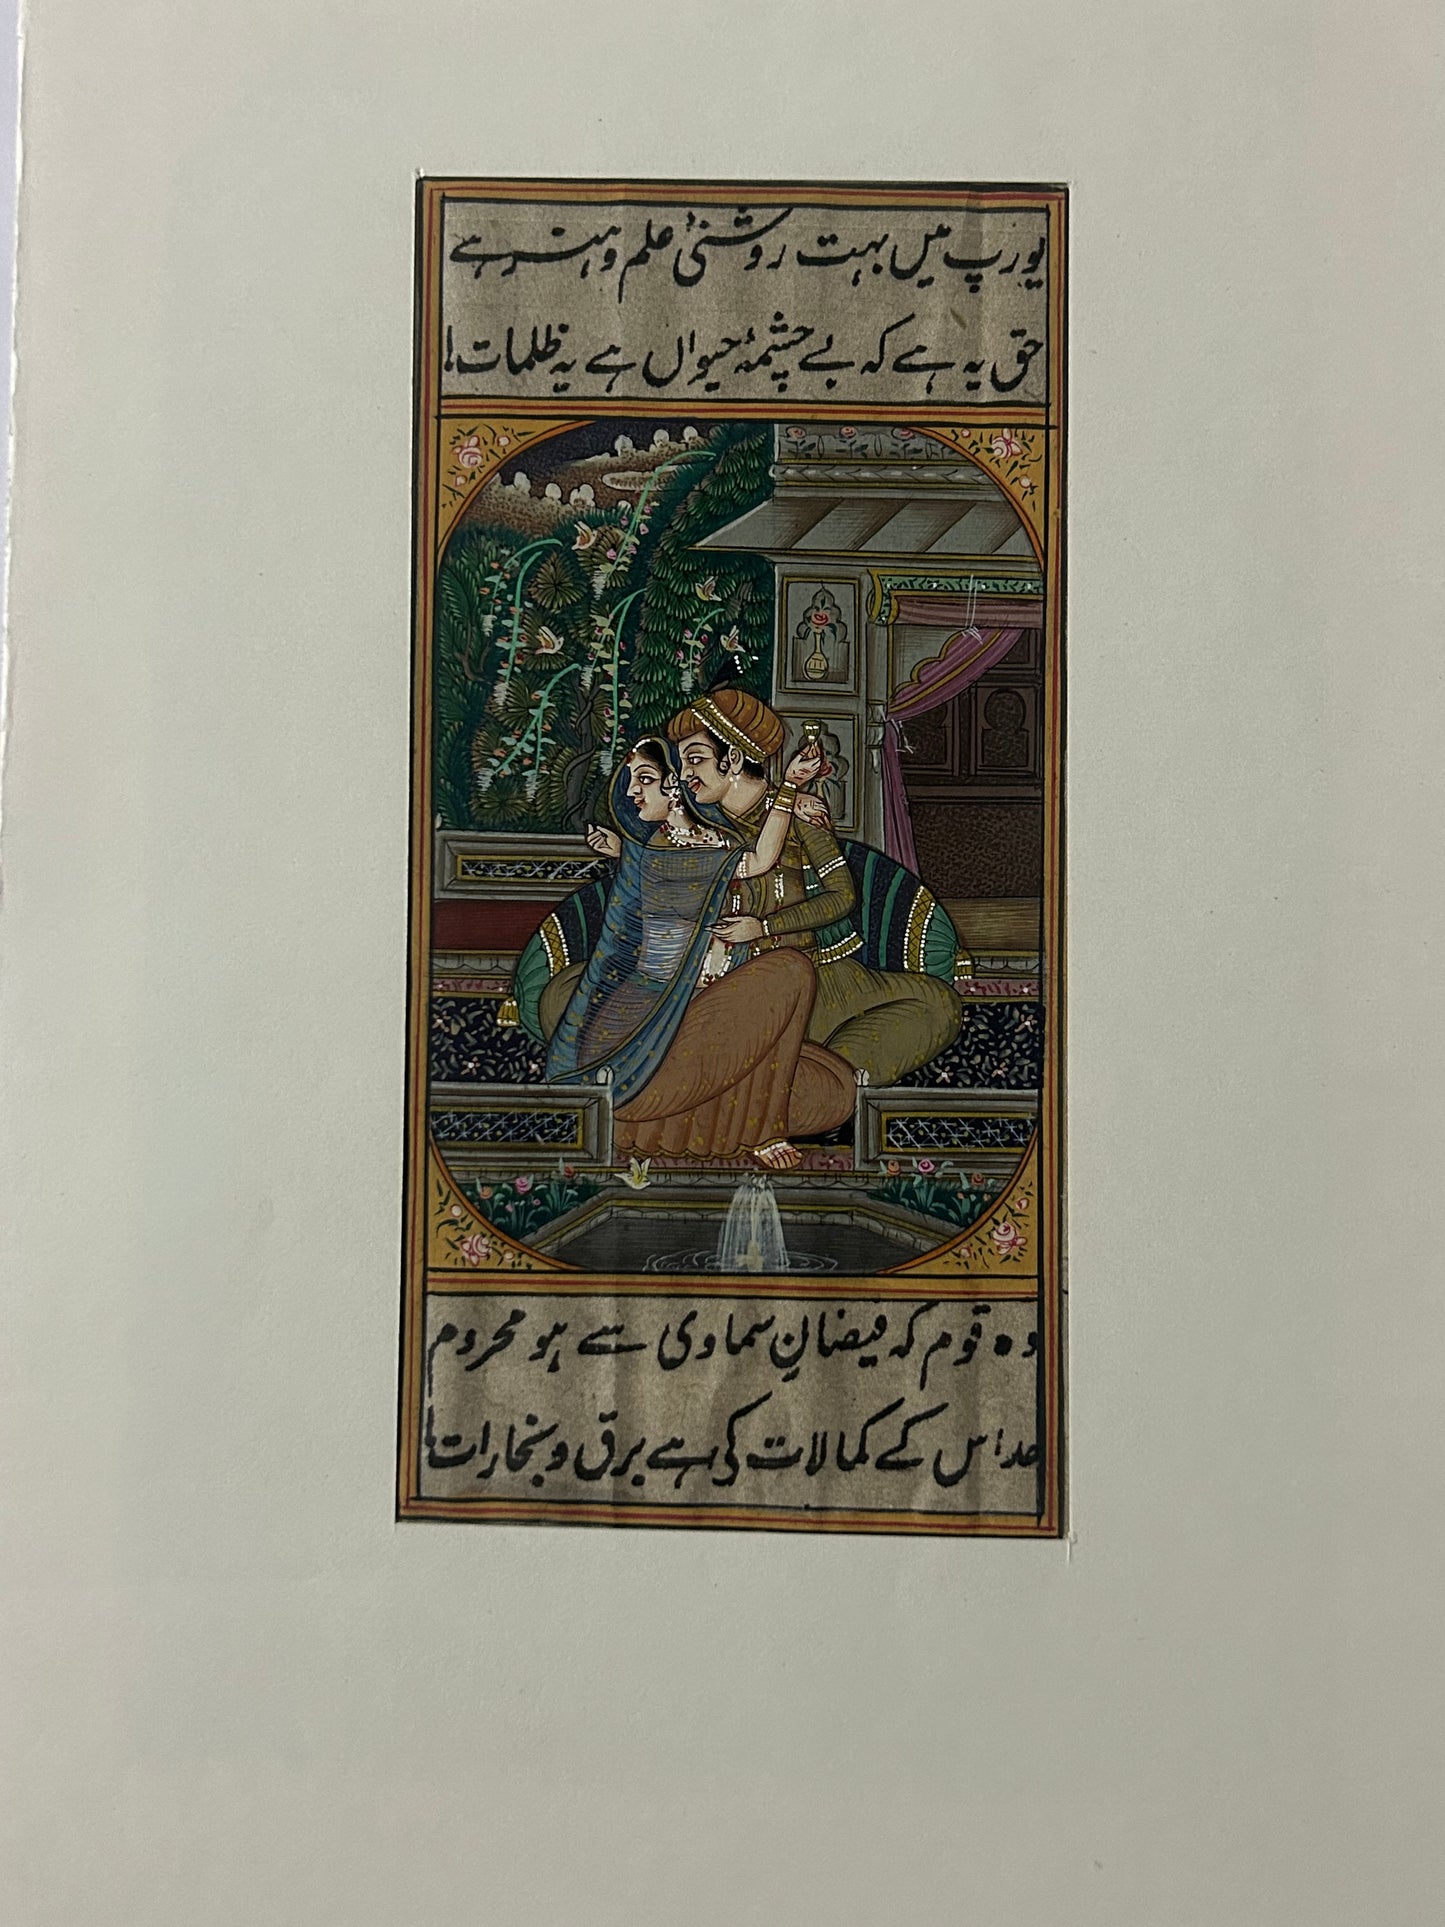 یورپ میں بہت روشنیٔ علم و ہنر ہے
حق یہ ہے کہ بے چشمۂ حیواں ہے یہ ظلمات!
وہ قوم کہ فیضانِ سماوی سے ہو محروم
حد اس کے کمالات کی ہے برق و بخارات!